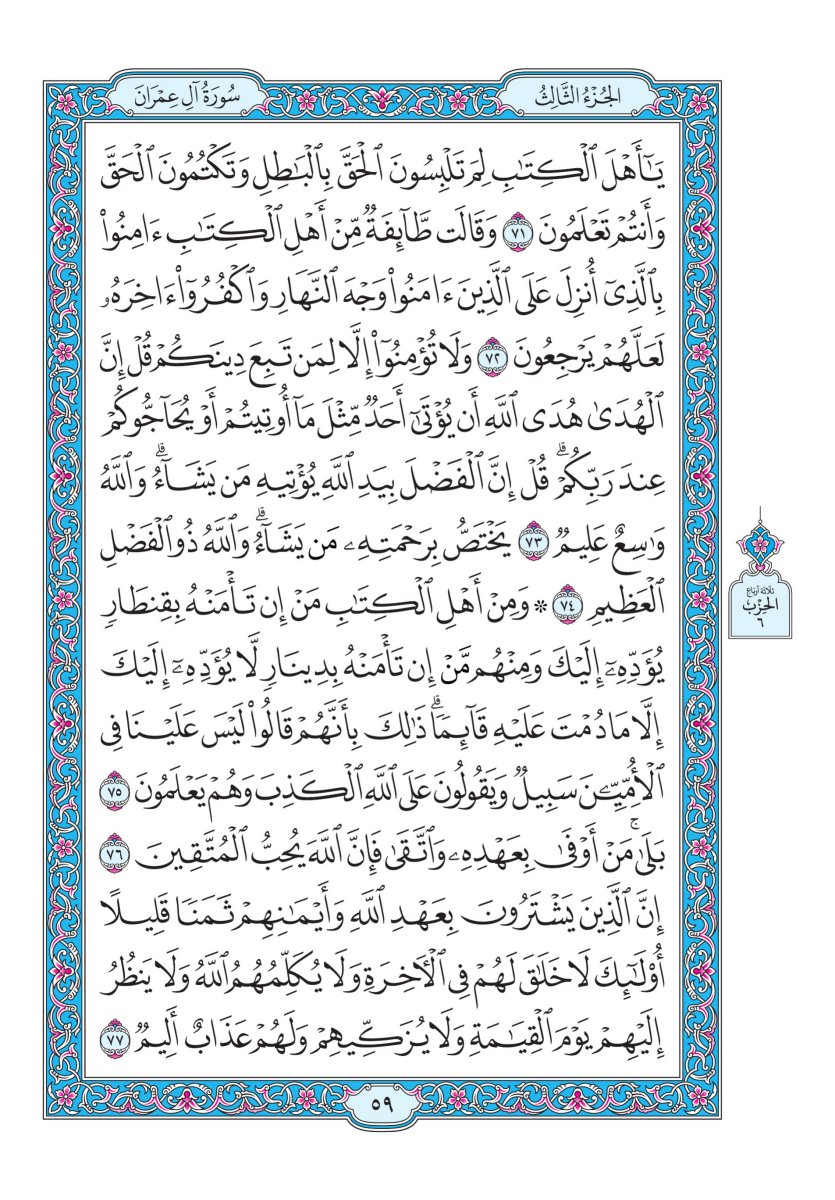 الجُزْءُ الثَّالِثُ
سُورَةُ آلِ عِمْرَانَ
يَٰٓأَهۡلَ ٱلۡكِتَٰبِ لِمَ تَلۡبِسُونَ ٱلۡحَقَّ بِٱلۡبَٰطِلِ وَتَكۡتُمُونَ ٱلۡحَقَّ
وَأَنتُمۡ تَعۡلَمُونَ ٧١ وَقَالَت طَّآئِفَةٞ مِّنۡ أَهۡلِ ٱلۡكِتَٰبِ ءَامِنُواْ
بِٱلَّذِيٓ أُنزِلَ عَلَى ٱلَّذِينَ ءَامَنُواْ وَجۡهَ ٱلنَّهَارِ وَٱكۡفُرُوٓاْ ءَاخِرَهُۥ
لَعَلَّهُمۡ يَرۡجِعُونَ ٧٢ وَلَا تُؤۡمِنُوٓاْ إِلَّا لِمَن تَبِعَ دِينَكُمۡ قُلۡ إِنَّ
ٱلۡهُدَىٰ هُدَى ٱللَّهِ أَن يُؤۡتَىٰٓ أَحَدٞ مِّثۡلَ مَآ أُوتِيتُمۡ أَوۡ يُحَآجُّوكُمۡ
عِندَ رَبِّكُمۡۗ قُلۡ إِنَّ ٱلۡفَضۡلَ بِيَدِ ٱللَّهِ يُؤۡتِيهِ مَن يَشَآءُۗ وَٱللَّهُ
وَٰسِعٌ عَلِيمٞ ٧٣ يَخۡتَصُّ بِرَحۡمَتِهِۦ مَن يَشَآءُۗ وَٱللَّهُ ذُو ٱلۡفَضۡلِ
ٱلۡعَظِيمِ ٧٤ ۞ وَمِنۡ أَهۡلِ ٱلۡكِتَٰبِ مَنۡ إِن تَأۡمَنۡهُ بِقِنطَارٖ
يُؤَدِّهِۦٓ إِلَيۡكَ وَمِنۡهُم مَّنۡ إِن تَأۡمَنۡهُ بِدِينَارٖ لَّا يُؤَدِّهِۦٓ إِلَيۡكَ
إِلَّا مَا دُمۡتَ عَلَيۡهِ قَآئِمٗاۗ ذَٰلِكَ بِأَنَّهُمۡ قَالُواْ لَيۡسَ عَلَيۡنَا فِي
ٱلۡأُمِّيِّـۧنَ سَبِيلٞ وَيَقُولُونَ عَلَى ٱللَّهِ ٱلۡكَذِبَ وَهُمۡ يَعۡلَمُونَ ٧٥
بَلَىٰۚ مَنۡ أَوۡفَىٰ بِعَهۡدِهِۦ وَٱتَّقَىٰ فَإِنَّ ٱللَّهَ يُحِبُّ ٱلۡمُتَّقِينَ ٧٦
إِنَّ ٱلَّذِينَ يَشۡتَرُونَ بِعَهۡدِ ٱللَّهِ وَأَيۡمَٰنِهِمۡ ثَمَنٗا قَلِيلًا
أُوْلَٰٓئِكَ لَا خَلَٰقَ لَهُمۡ فِي ٱلۡأٓخِرَةِ وَلَا يُكَلِّمُهُمُ ٱللَّهُ وَلَا يَنظُرُ
إِلَيۡهِمۡ يَوۡمَ ٱلۡقِيَٰمَةِ وَلَا يُزَكِّيهِمۡ وَلَهُمۡ عَذَابٌ أَلِيمٞ ٧٧
ثلاثة أرباع
الحِزْب
٦
٥٩